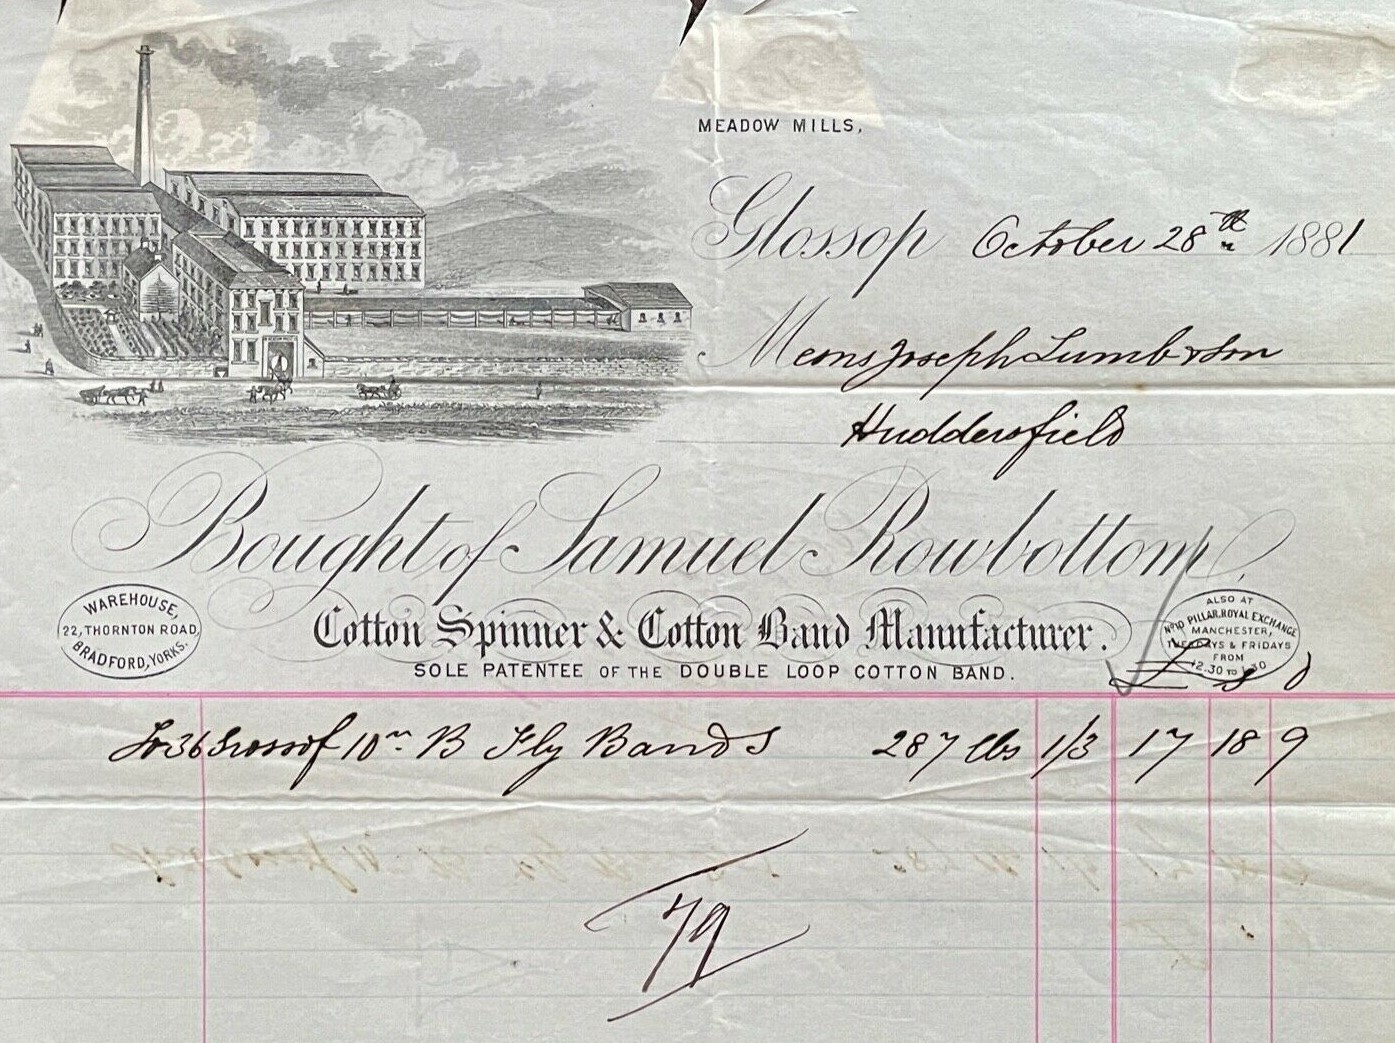 MEADOW MILLS,
Glossop October 28th 1881
Messrs Joseph Lumb & Son
Huddersfield
Bought of Samuel Rowbottom,
Cotton Spinner & Cotton Band Manufacturer.
SOLE PATENTEE OF THE DOUBLE LOOP COTTON BAND.
WAREHOUSE,
22, THORNTON ROAD,
BRADFORD, YORKS.
ALSO AT
No 10 PILLAR, ROYAL EXCHANGE
MANCHESTER,
TUESDAYS & FRIDAYS
FROM
12.30 TO 1.30
£ s d
To 36 Gross of 10 in B Fly Bands 287 lbs 1/3 17 18 9
79